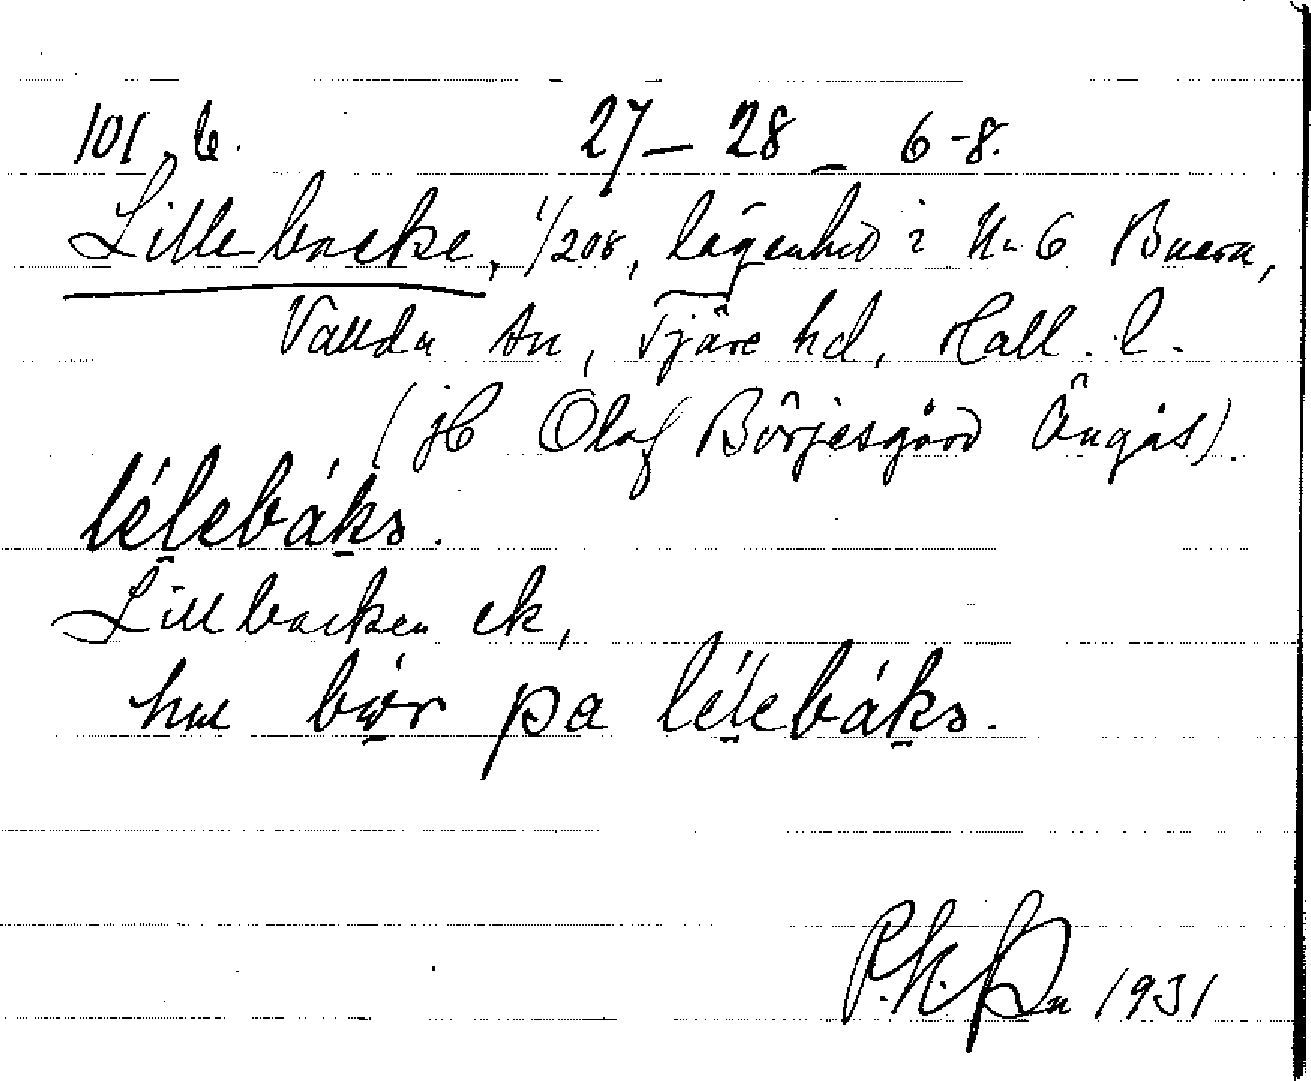 101 6. 27 — 28 — 6-8.
Lillebacke, 1/208, lägenhet i N. 6 Buera,
Vallda sn, Fjäre hd, Hall. l.
( Olof Börjesgård Ängås).
lélebáks.
Lillbacken ek,
hu bør pa lélebáks.
1931